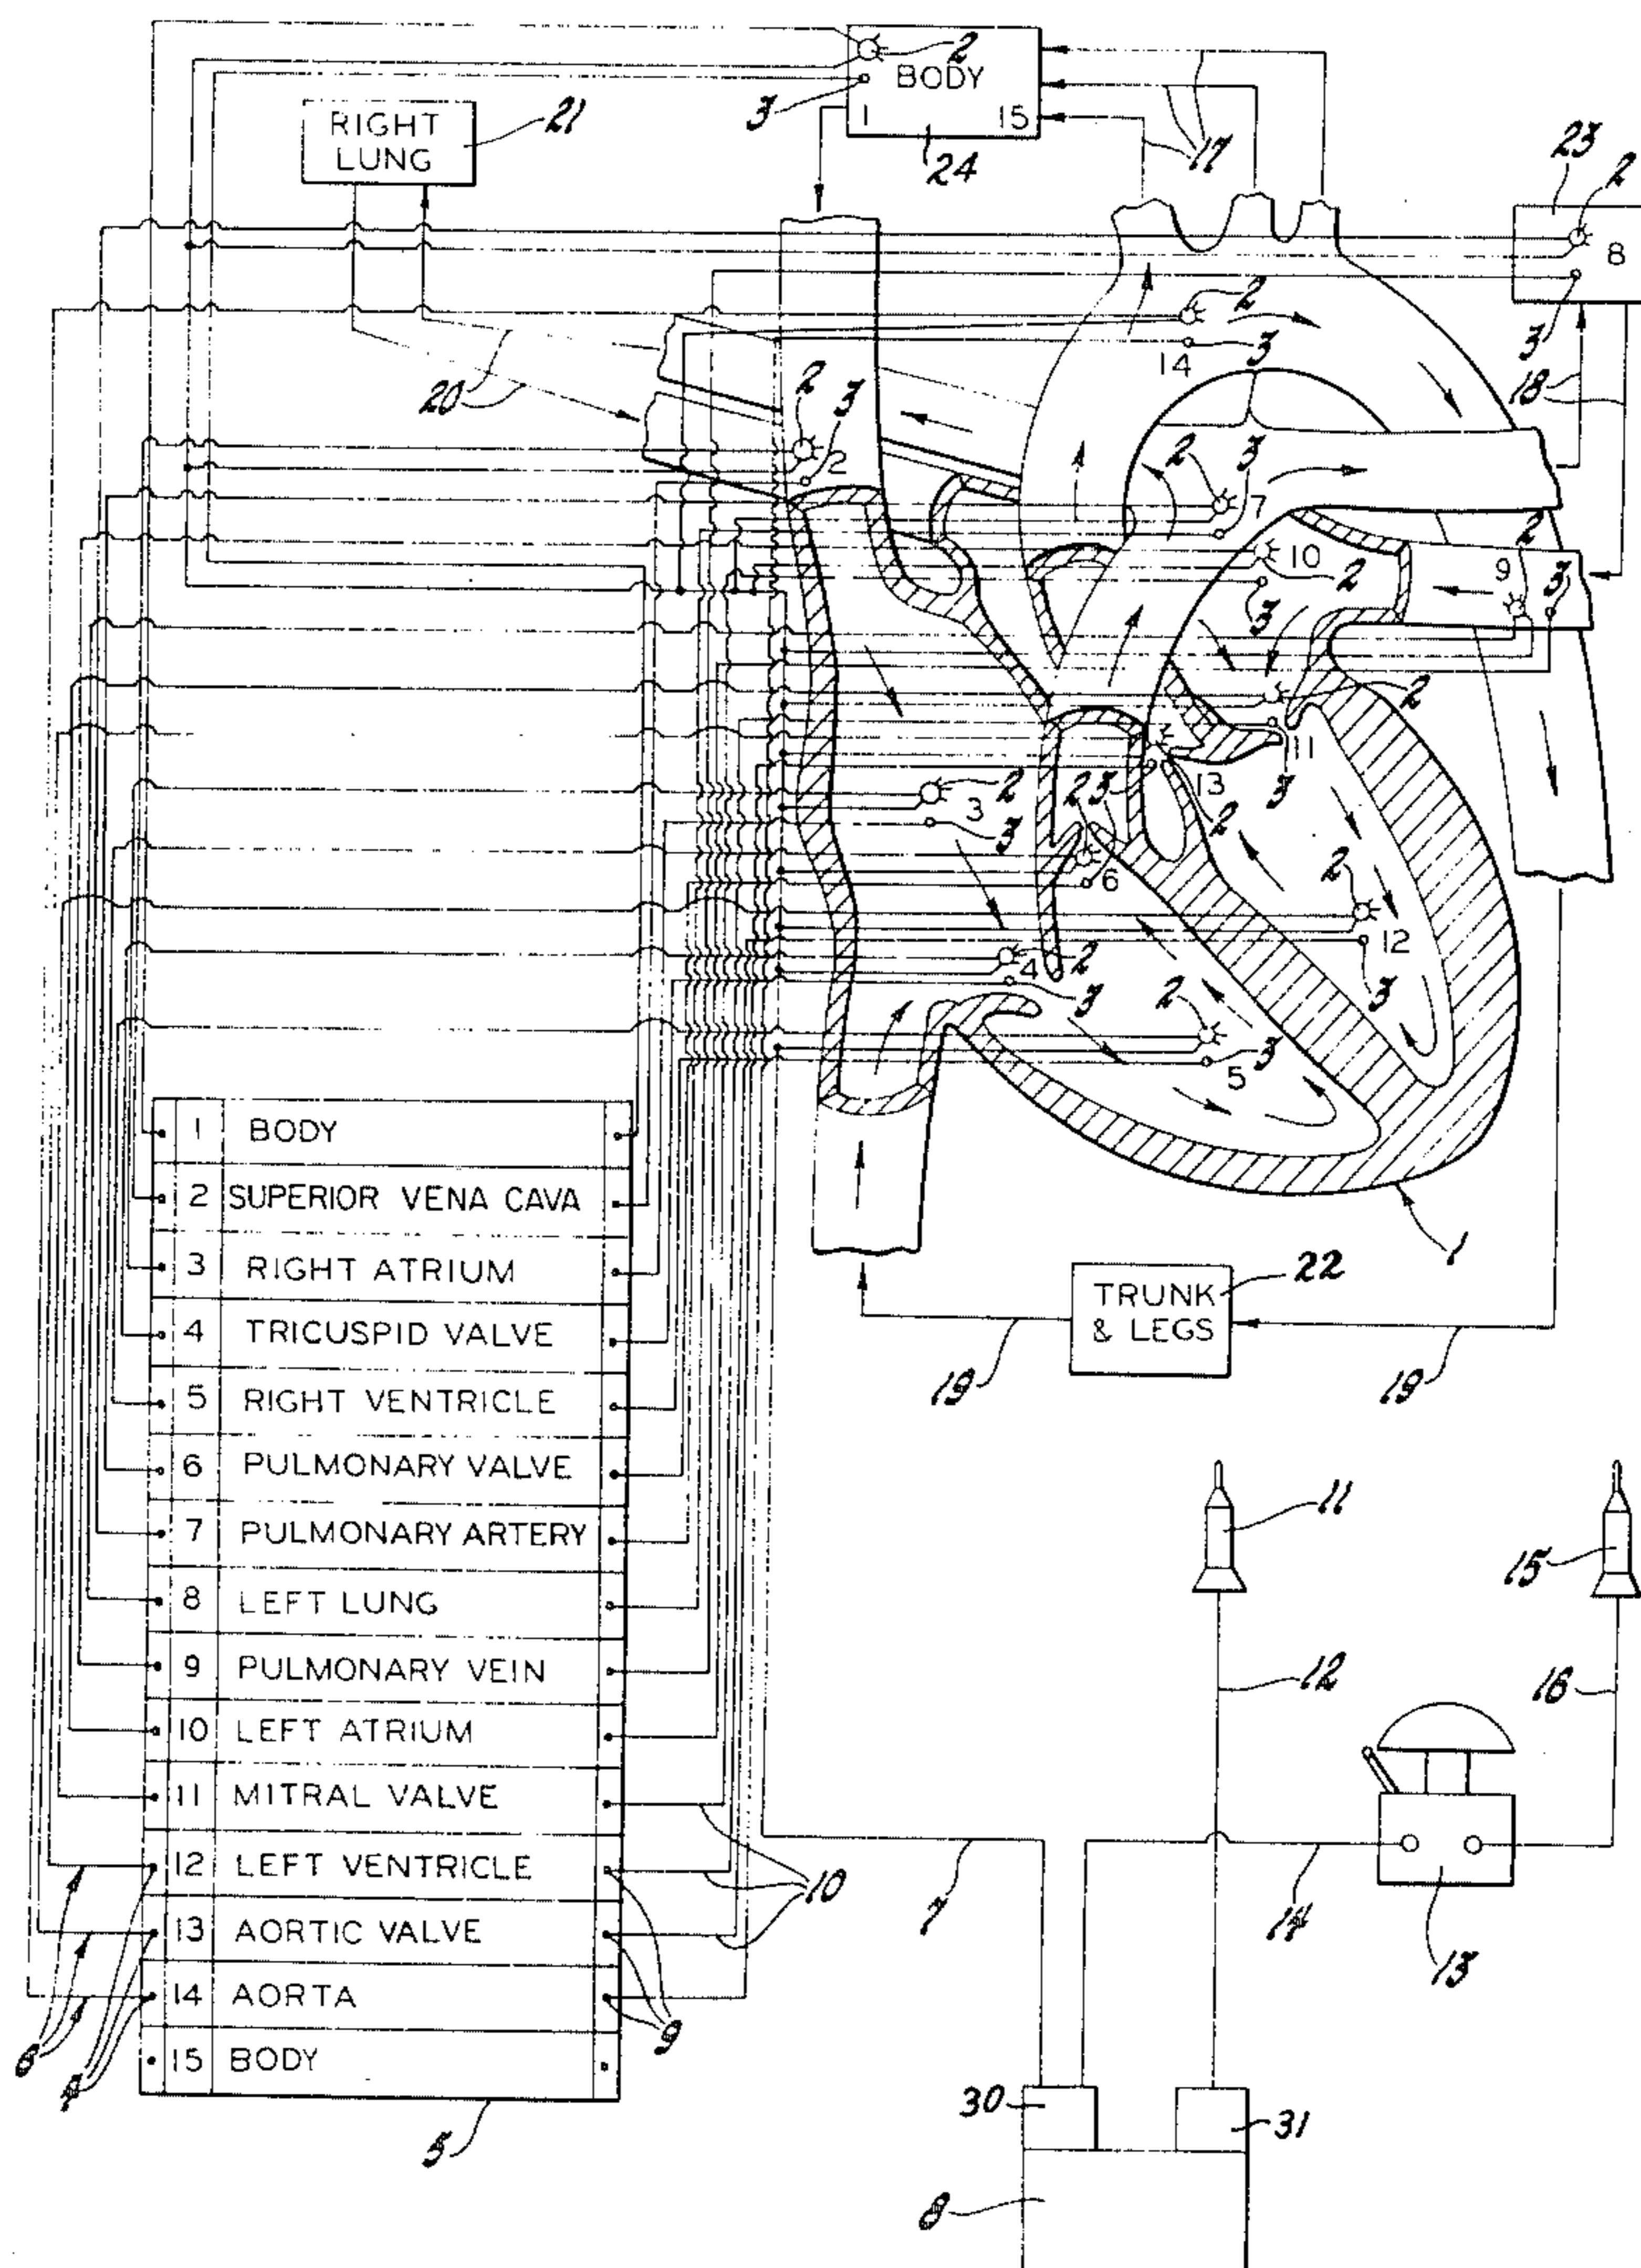 2
BODY
3
1 15
24
17
RIGHT
LUNG
21
23
2
8
3
18
2
3
14
20
2
3
2
2
3
7
10
2
3
2
9
3
2
11
3
13
2
3
2
3
23
6
2
12
3
4
2
3
2
3
5
1
TRUNK
& LEGS
22
19
19
1 BODY
2 SUPERIOR VENA CAVA
3 RIGHT ATRIUM
4 TRICUSPID VALVE
5 RIGHT VENTRICLE
6 PULMONARY VALVE
7 PULMONARY ARTERY
8 LEFT LUNG
9 PULMONARY VEIN
10 LEFT ATRIUM
11 MITRAL VALVE
12 LEFT VENTRICLE
13 AORTIC VALVE
14 AORTA
15 BODY
6
4
5
9
10
7
11
12
15
16
14
13
30
31
8